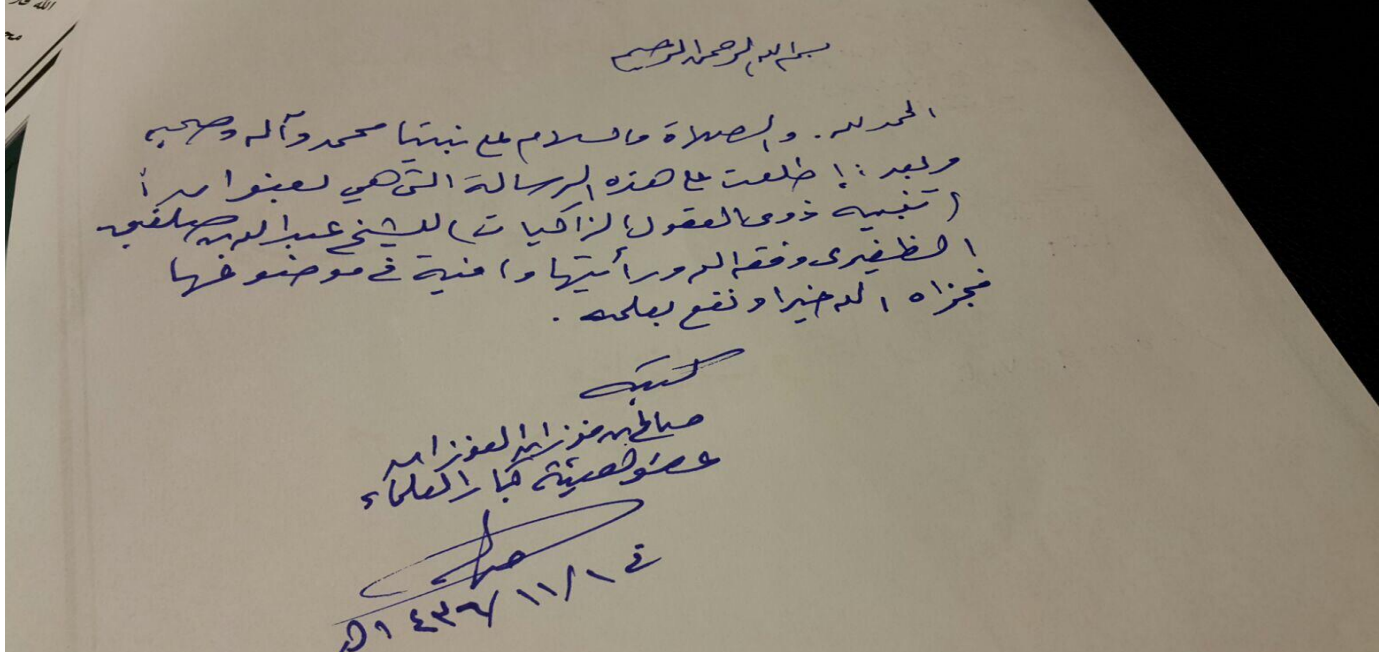 الله
بسم الله الرحمن الرحيم
الحمد لله. والصلاة والسلام على نبينا محمد وآله وصحبه
وبعد: اطلعت على هذه الرسالة التي هي بعنوان:
(تنبيه ذوي العقول الزاكيات) للشيخ عبدالله بن صلفيق
الظفيري وفقه الله ورأيتها وافية في موضوعها
فجزاه الله خيرا ونفع بعلمه.
كتبه
صالح بن فوزان الفوزان
عضو هيئة كبار العلماء
في ١/١١/١٤٣٦هـ